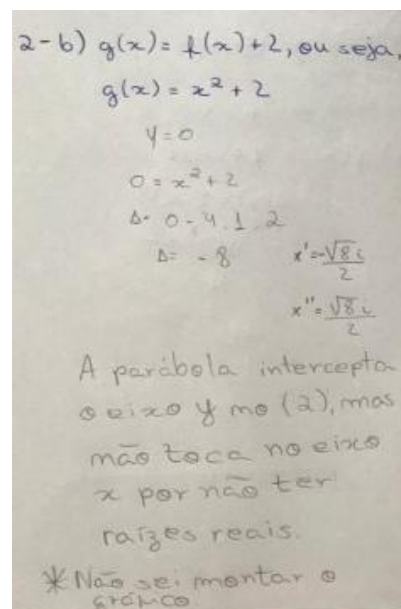 2-b) g(x) = f(x)+2, ou seja,
g(x) = x² + 2
y = 0
0 = x² + 2
Δ= 0 - 4.1.2
Δ= - 8 x' = -√8 i / 2
x'' = √8 i / 2
A parábola intercepta
o eixo y no (2), mas
não toca no eixo
x por não ter
raízes reais.
* Não sei montar o
gráfico.